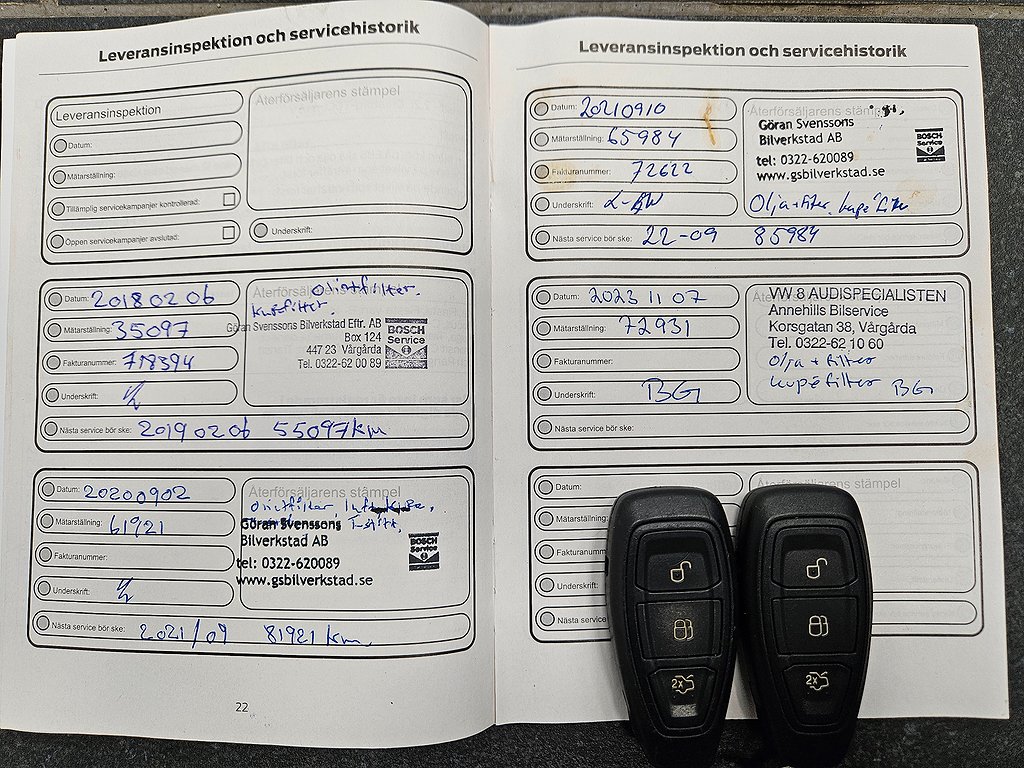 Leveransinspektion och servicehistorik
Leveransinspektion
Återförsäljarens stämpel
Datum:
Mätarställning:
Tillämplig servicekampanjer kontrollerad:
Öppen servicekampanjer avslutad:
Underskrift:
Datum: 2018 02 06
Mätarställning: 35097
Fakturanummer: 718394
Underskrift:
Återförsäljarens
Kupéfilter.
Göran Svenssons Bilverkstad Eftr. AB
Box 124
447 23 Vårgårda
Tel. 0322-62 00 89
BOSCH
Service
Nästa service bör ske: 2019 02 06 55097 km
Datum: 20200902
Mätarställning: 61921
Fakturanummer:
Underskrift:
Återförsäljarens stämpel
Göran Svenssons
Bilverkstad AB
tel: 0322-620089
www.gsbilverkstad.se
BOSCH
Service
Nästa service bör ske: 2021/09 81921 km
22
Leveransinspektion och servicehistorik
Datum: 20210910
Mätarställning: 65984
Fakturanummer: 72622
Underskrift:
Återförsäljarens
Göran Svenssons
Bilverkstad AB
tel: 0322-620089
www.gsbilverkstad.se
BOSCH
Service
Olja+filter, kupé
Nästa service bör ske: 22-09 85984
Datum: 2023 11 07
Mätarställning: 72931
Fakturanummer:
Underskrift: BG
VW & AUDISPECIALISTEN
Annehills Bilservice
Korsgatan 38, Vårgårda
Tel. 0322-62 10 60
Olja + filter
kupéfilter BG
Nästa service bör ske:
Datum:
Mätarställning:
Fakturanumm
Underskrift:
Nästa service
Återförsäljarens stämpel
2x
2x